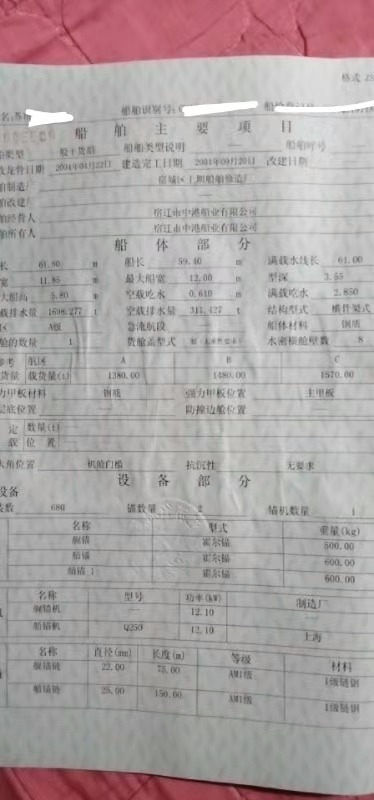 格式
船舶识别号:
船 舶 主 要 项 目
船舶类型 一般干货船 船舶类型说明 船舶呼号
安放龙骨日期 2004年04月22日 建造完工日期 2004年09月20日 改建日期
船舶制造厂 宿城区
船舶改建厂
船舶经营人 宿迁市中港船业有限公司
船舶所有人 宿迁市中港船业有限公司
船 体 部 分
长 61.80 m 船长 59.40 m 满载水线长 61.00
宽 11.85 m 最大船宽 12.00 m 型深 3.55
最大船高 5.80 m 空载吃水 0.610 m 满载吃水 2.850
满载排水量 1698.277 t 空载排水量 311.427 t 结构型式 横骨架式
A级 急流航段 船体材料 钢质
舱的数量 1 货舱盖型式 水密横舱壁数 8
参考 航区 A B C
载货量 载货量(t) 1380.00 1480.00 1570.00
力甲板材料 钢质 强力甲板位置 主甲板
层底位置 防撞边舱位置
定 数量(t)
载 位 置
大角位置 机舱门槛 抗沉性 无要求
设 备 部 分
设备
装数 680 锚数量 2 锚机数量 1
名称 型式 重量(kg)
艉锚 霍尔锚 500.00
艏锚 霍尔锚 600.00
艏锚 霍尔锚 600.00
名称 型号 功率(kW) 制造厂
艉锚机 12.10
艏锚机 Q250 12.10 上海
名称 直径(mm) 长度(m) 等级 材料
艉锚链 22.00 75.00 AM1级 1级链钢
艏锚链 25.00 150.00 AM1级 1级链钢